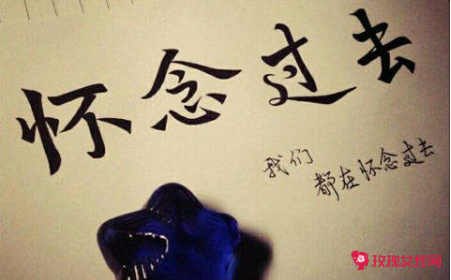 怀念过去
我们
都在怀念过去
玫瑰女性网